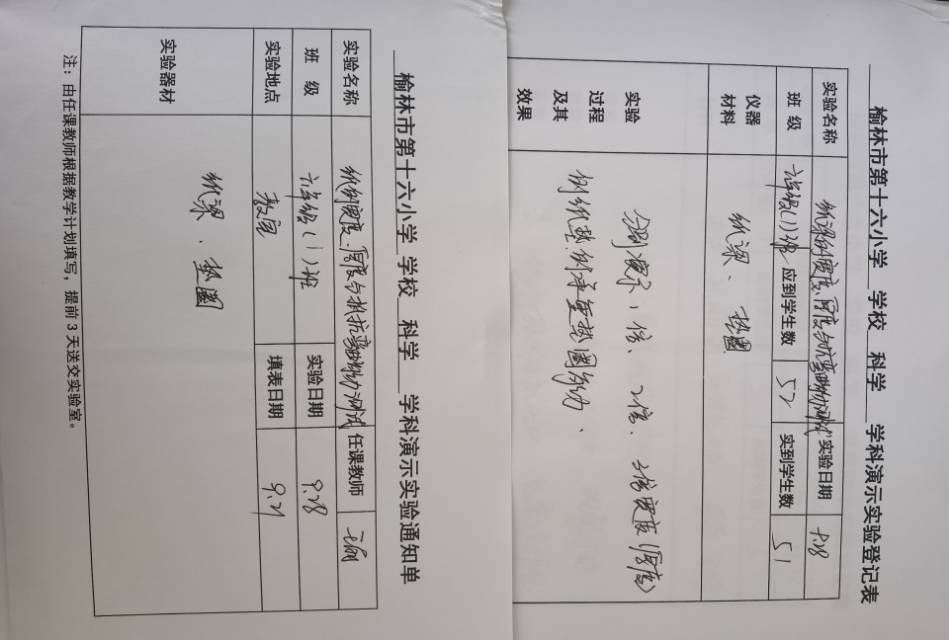 榆林市第十六小学 学校 科学 学科演示实验通知单
实验名称 纸的宽度、厚度与抵抗弯曲能力测试 任课教师
班级 六年级(1)班 实验日期 9.28
实验地点 教室 填表日期 9.21
实验器材 纸梁、垫圈
注:由任课教师根据教学计划填写,提前3天送交实验室。
榆林市第十六小学 学校 科学 学科演示实验登记表
实验名称 纸梁的宽度、厚度与抗弯曲能力测试 实验日期 9.28
班级 六年级(1)班 应到学生数 52 实到学生数 51
仪器材料 纸梁、垫圈
实验过程及其效果
分别演示1倍、2倍、3倍宽度(厚度)
的纸垫的承重垫圈能力、